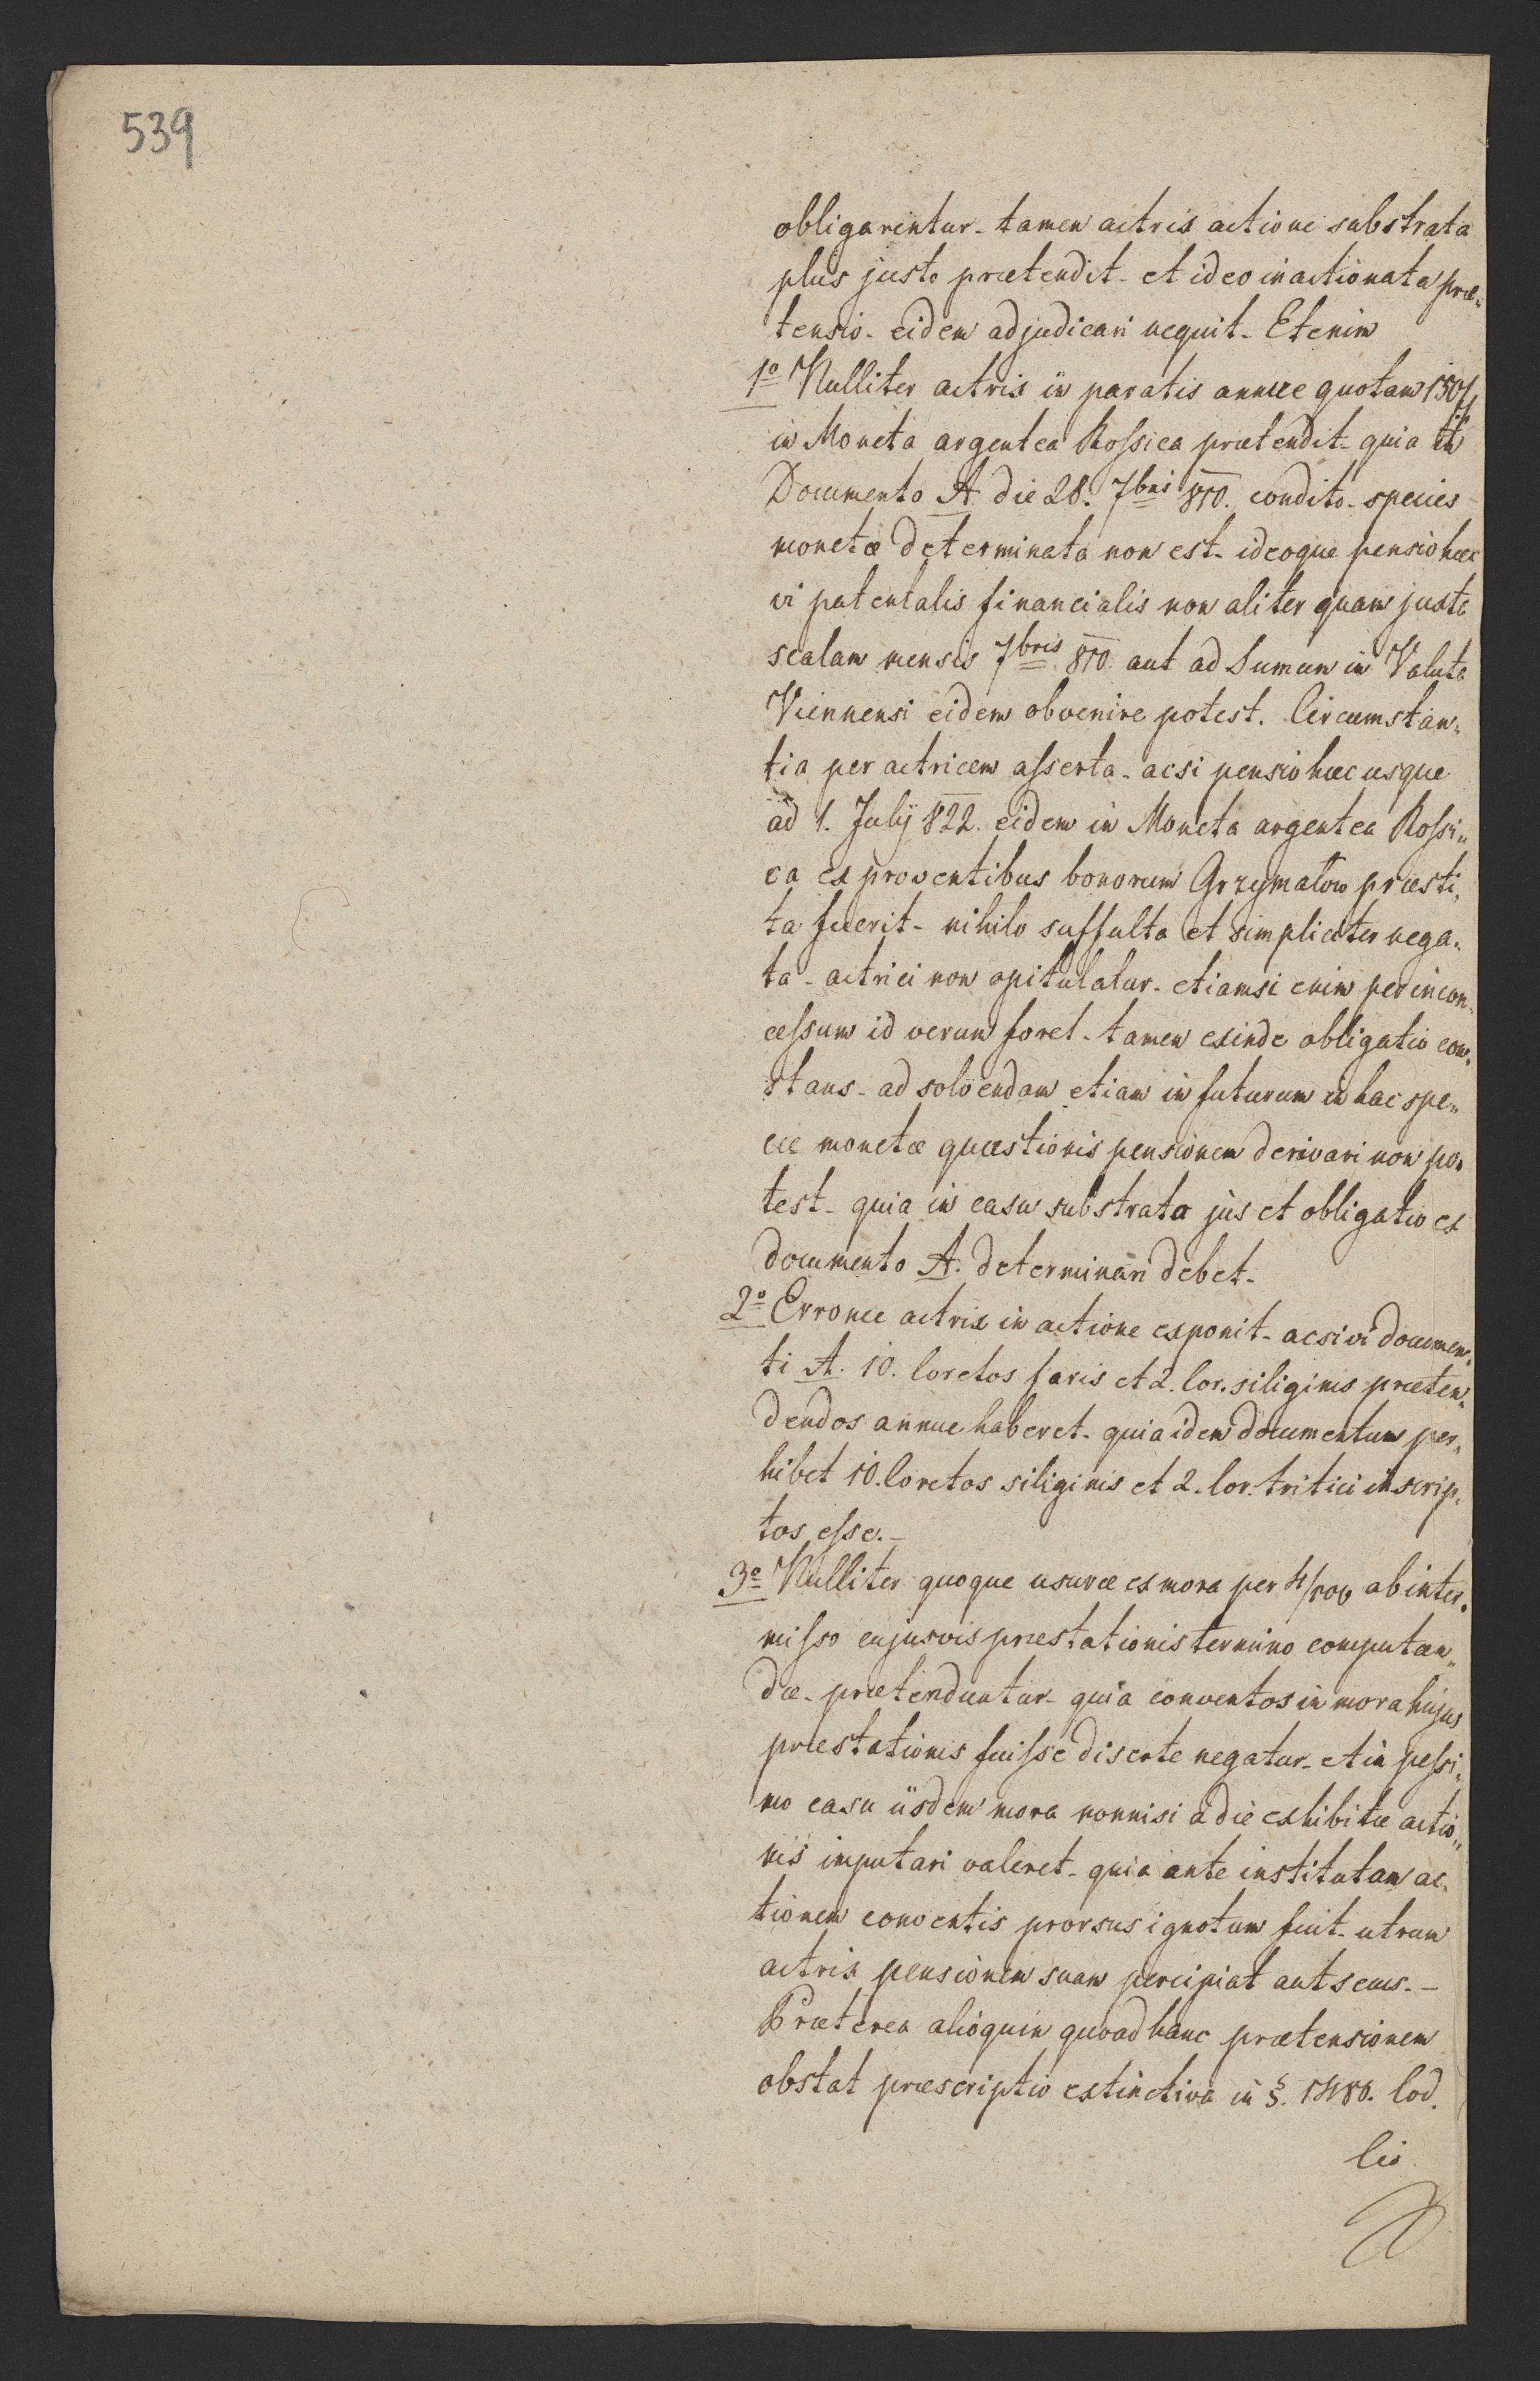 539
obligarentur - tamen actrix actione substrata
plus justo prætendit - et ideo inactionata præ„
tensio - eidem adjudicari nequit - Etenim
1º Nulliter actrix in paratis annue quotam 150
in Moneta argentea Rossica prætendit - quia in
Documento A. die 28. 7bri 810. condito - species
monetæ determinata non est - ideoque pensio hæc
vi patentalis financialis non aliter quam juxta
scalam mensis 7bris 810. aut ad Sumum in Valuta
Viennensi eidem obvenire potest. Circumstan„
tia per actricem asserta - acsi pensio hæc usque
ad 1. Julÿ 822. eidem in Moneta argentea Rossi„
ca ex proventibus bonorum Grzymałow præsti„
ta fuerit - nihilo suffulta et simpliciter nega„
ta - actrici non opitulatur - etiamsi enim per incon„
cessum id verum foret - tamen exinde obligatio con„
stans - ad solvendam etiam in futurum in hac spe„
cie monetæ quæstionis pensionem derivari non po„
test - quia in casu substrato jus et obligatio ex
documento A. determinari debet -
2º Erronee actrix in actione exponit - acsi vi documen„
ti A. 10. coretos faris et 2. cor. siliginis præten„
dendos annue haberet - quia idem documentum per„
hibet 10. coretos siliginis et 2. cor. tritici inscrip„
tos esse. -
3º Nulliter quoque usuræ ex mora per 4/100 ab inter„
misso cujusvis præstationis termino computan„
dæ - prætenduntur - quia conventos in mora hujus
præstationis fuisse diserte negatur - et in pessi„
mo casu iisdem mora nonnisi a die exhibitæ actio„
nis imputari valeret - quia ante institutam ac„
tionem conventis prorsus ignotum fuit - utrum
actrix pensionem suam percipiat aut secus. -
Præterea alioquin quoad hanc prætensionem
obstat præscriptio extinctiva in §. 1480. Cod.
Civ